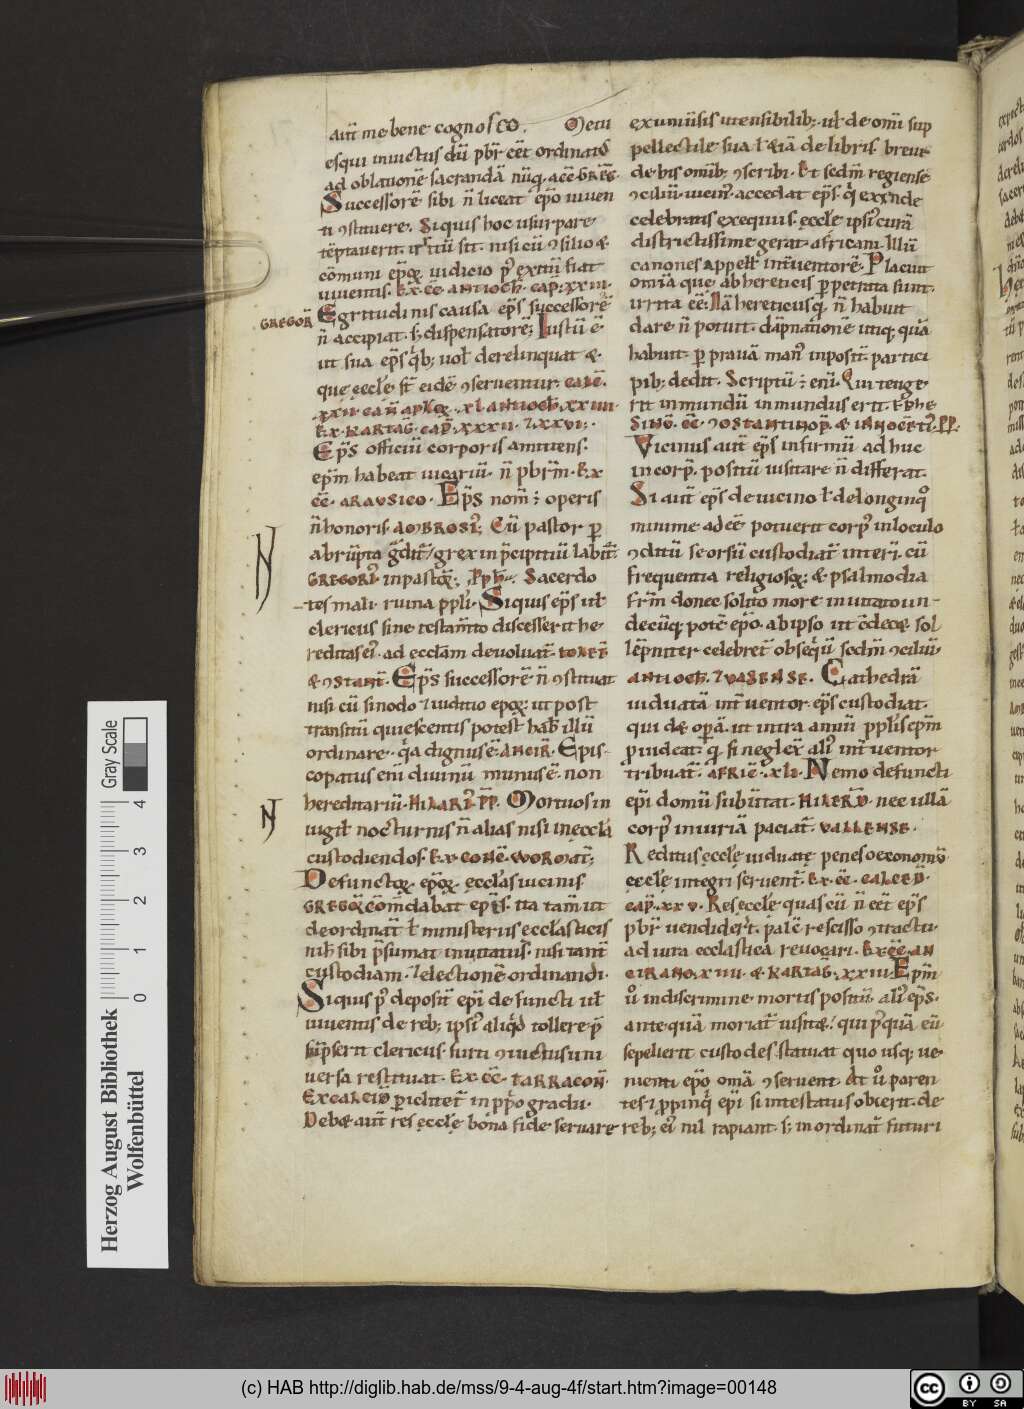 aut̄ me bene cognosco. Metu
esqui inuictus dū pbr̄ cēt ordinatꝰ
ad oblationē sacrandā nūq. acc̄ GREḠ.
Successorē sibi n̄ liceat ep̄o uiuen
ti ꝯstituere. Siquis hoc usurpare
tēptauerit. irritū sit. nisi cū ꝯsilio ⁊
cōmuni ep̄oꝝ iudicio p̄ exitū fiat
uiuentis. Ex c̄c̄ ANTIOCH̄. CAP̄. XXIII.
GREGOR̄
Egritudinis causa ep̄s successorē
n̄ accipiat. s; dispensatorē; Iustū ē
ut sua ep̄s qib; uol̄t derelinquat ⁊
que eccl̄e st̄ eidē ꝯseruentur. CALC̄.
XXII. CAN̄ APL̄OꝜ. XL. ANTIOCH̄. XXIIII.
Ex KARTAḠ. CAP̄. XXXII. ⁊ XXVI.
Ep̄s officiū corporis amittens.
ep̄m habeat uicariū. n̄ pbr̄m. Ex
c̄c̄. ARAVSICO. Ep̄s nom̄ ÷ operis
n̄ honoris. AMBROSĪ; Cū pastor p̄
abrūpta gditr̄/ grex in p̄cipitiū labit̄.
GREGORĪ in pastoꝝ; Eph̄. Sacerdo
tes mali. ruina ppl̄i. Siquis ep̄s ul̄
clericus sine testam̄to discesserit he
reditas eī. ad eccl̄am deuoluat̄. TOLET̄
⁊ ꝯSTANT̄. Ep̄s successorē n̄ ꝯstituat
nisi cū sinodo ⁊ iuditio ep̄oꝝ. ut post
transitū quiescentis potest hab̄ illū
ordinare. q̄a dignus ē. ANCIR̄. Epis
copatus enī diuinū munus ē. non
hereditariū. HILARĪ. PP̄. Mortuos in
uigil̄ nocturnis n̄ alias nisi in eccl̄a
custodiendos. Ex CONC̄. WORMAT̄.
Defunctoꝝ ep̄oꝝ eccl̄as uicinis
GREGOR̄ cōm̄dabat ep̄is. ita tam̄ ut
de ordinat̄ l̄ ministeriis eccl̄asticis
nih̄ sibi p̄sumat inuitatus. nisi tant̄
custodiam. ⁊ electionē ordinandi.
Siquis p̄ deposit̄ ep̄i defuncti ul̄
uiuentis de reb; ipsī aliqd̄ tollere p̄
sūpserit clericus. furti ꝯuictus uni
uersa restituat. Ex c̄c̄. TARRACON̄.
Ex CALCID̄ p̄iclitet̄ in pp̄o gradu.
Debæ aut̄ res eccl̄e bona fide seruare
exumiisis utensibilib;. ul̄ de omī sup
pellectile sua l̄ etiā de libris breue
de his omib; ꝯscribi. Et scdm̄ regiense
ꝯciliū. iueniꝰ. accedat ep̄s. qi exinde
celebratis exequiis. eccl̄e ipsiꝰ curā
districtissime gerat. africani. Illū
canones appell̄t int̄uentorē. Placuit
omīa que ab hereticis ppetrata sunt.
irrita ēē. Nā hereticus q n̄ habuit
dare n̄ potuit. dāpnatione utiq; quā
habuit p prauā man̄ inposit̄. partici
pib; dedit. Scriptū ÷ eni. Qui teuge
rit inmundū inmundus erit. EPHE
SINO. c̄c̄. ꝯSTANTINOP̄. ⁊ INNOCETI. PP̄.
Vicinus aut̄ ep̄s infirmū adhuc
in corpꝰ. positū uisitare n̄ differat.
Si aut̄ ep̄s de uicino l̄ de longinqͦ
minime ad c̄c̄ potuerit corpꝰ in loculo
ꝯditū seorsū custodiat̄ interī. cū
frequentia religiosoꝝ; ⁊ psalmodia
fr̄m donec solito more inuitato un
decūq; potē ep̄o. ab ipso ut cēdecæ sol
lēpniter celebret̄ obseqiū scdm̄ ꝯciliū
ANTIOCH̄. ⁊ VASENSE. Cathedrā
uiduatā int̄uentor. ep̄s custodiat.
qui dæ operā. ut intra annū ppl̄is ep̄m
puideat. q si neglex̄ aliꝰ int̄uentor
tribuat̄. AFRIC̄. XLI. Nemo defuncti
ep̄i domū subūtat. HILERD̄. nec ullā
corpꝰ iniuriā paciat̄. VALLENSE.
Reditus eccl̄e uiduate penes oeconomū
eccl̄e integri seruent̄. Ex c̄c̄. CALCED̄.
CAP̄. XXV. Res eccl̄e quas cū n̄ cēt ep̄s
pbr̄ uendiderit. palē rescisso ꝯtractu.
ad iura ecclastica reuocari. Ex c̄c̄. AN
CIRANO. XIIII. ⁊ KARTAG. XXIII. Ep̄m
uͦ in discrimine mortis positū. aliꝰ ep̄s.
ante quā moriat̄ uisitæ. qui pꝰquā eū
sepelierit custodes statuat quo usq; ue
nienti ep̄o. omā ꝯseruent. At uͦ paren
tes. ⁊ ppinqi ep̄i si intestatus obierit. de
reb; eiꝰ nil rapiant. s; in ordinat̄ futuri
Gray Scale
0 1 2 3 4
Herzog August Bibliothek
Wolfenbüttel
(c) HAB http://diglib.hab.de/mss/9-4-aug-4f/start.htm?image=00148
cc BY SA